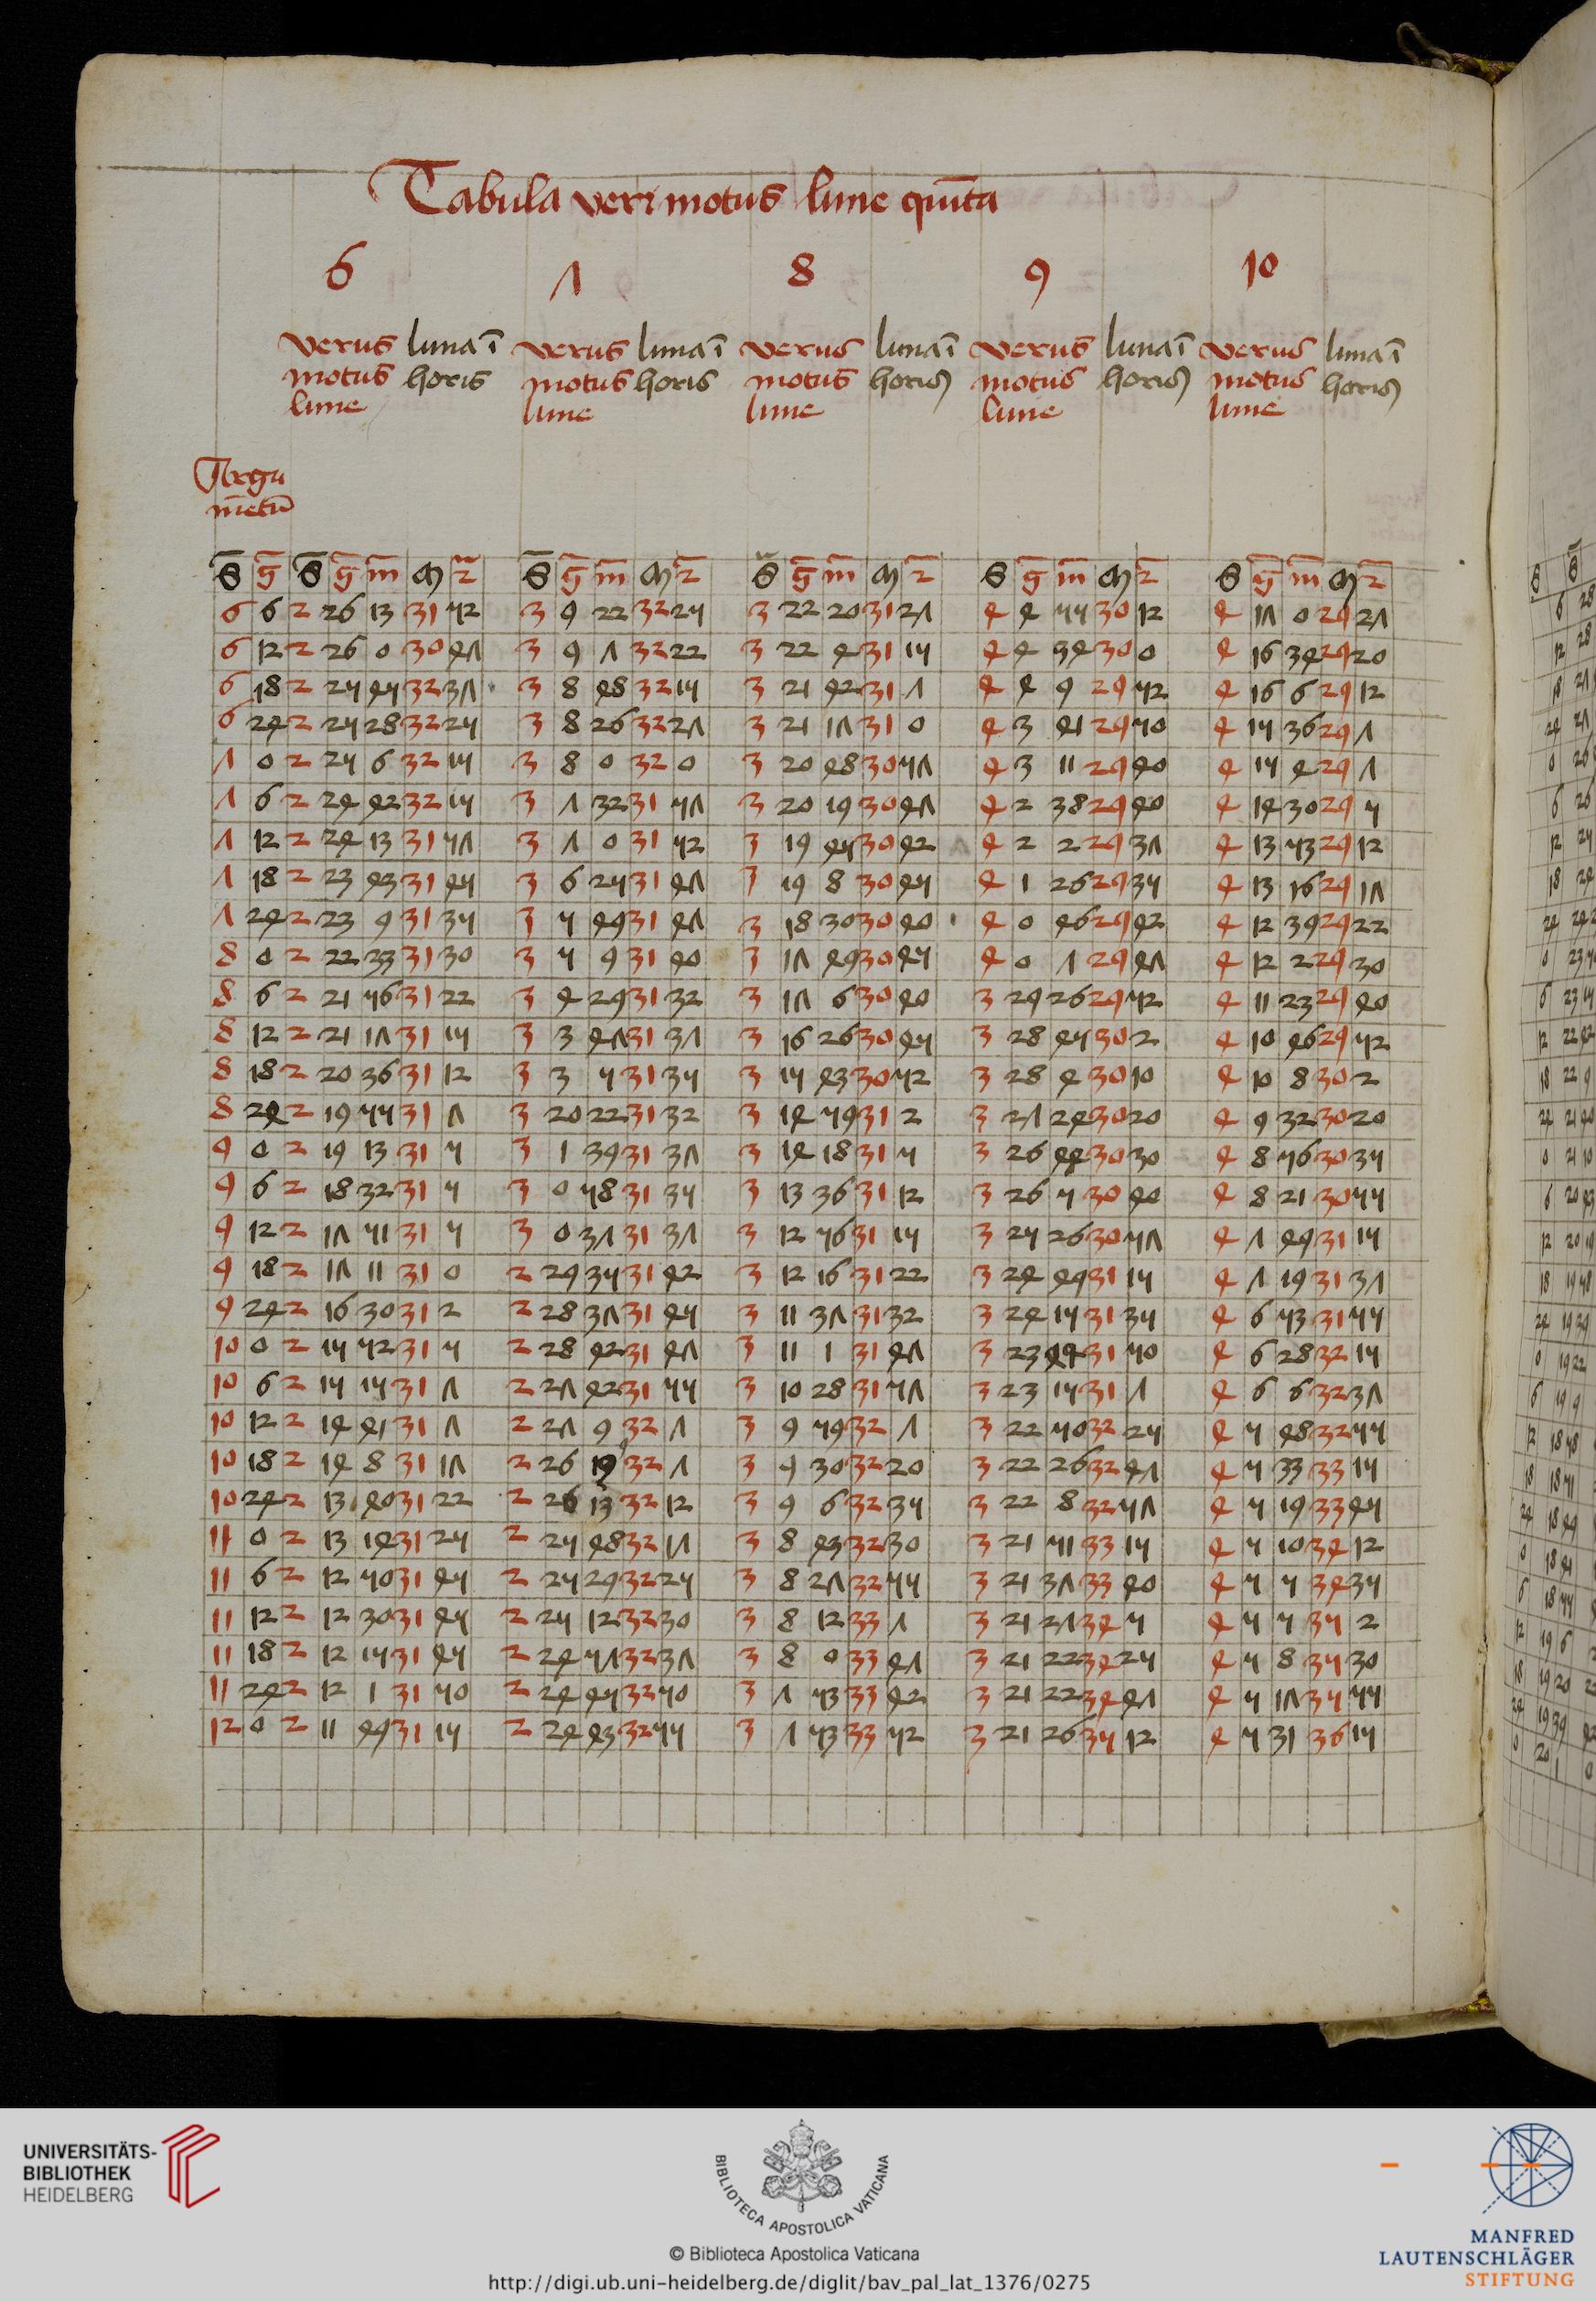 Tabula veri motus lune quīta
6 7 8 9 10
verus luna ī verus luna ī verus luna ī verus luna ī verus luna ī
motus horis motus horis motus horis motus horis motus horis
lune lune lune lune lune
Argu
mētū
S g S g m m 2 S g m m 2 S g m m 2 S g m m 2 S g m m 2
6 6 2 26 13 31 52 3 9 22 32 25 3 22 20 31 27 4 4 55 30 12 4 17 0 29 27
6 12 2 26 0 30 47 3 9 7 32 22 3 22 4 31 15 4 4 34 30 0 4 16 34 29 20
6 18 2 25 45 32 37 3 8 48 32 15 3 21 42 31 7 4 4 9 29 52 4 16 6 29 12
6 24 2 25 28 32 25 3 8 26 32 27 3 21 17 31 0 4 3 41 29 50 4 15 36 29 7
7 0 2 25 6 32 15 3 8 0 32 0 3 20 48 30 57 4 3 11 29 40 4 15 4 29 7
7 6 2 24 42 32 15 3 7 32 31 57 3 20 19 30 47 4 2 38 29 40 4 14 30 29 5
7 12 2 24 13 31 57 3 7 0 31 52 3 19 45 30 42 4 2 2 29 37 4 13 53 29 12
7 18 2 23 43 31 45 3 6 25 31 47 3 19 8 30 45 4 1 26 29 35 4 13 16 29 17
7 24 2 23 9 31 35 3 5 49 31 47 3 18 30 30 40 4 0 46 29 42 4 12 39 29 22
8 0 2 22 33 31 30 3 5 9 31 40 3 17 49 30 45 4 0 7 29 47 4 12 2 29 30
8 6 2 21 56 31 22 3 4 29 31 32 3 17 6 30 40 3 29 26 29 52 4 11 23 29 40
8 12 2 21 17 31 15 3 3 47 31 37 3 16 26 30 45 3 28 45 30 2 4 10 46 29 52
8 18 2 20 36 31 12 3 3 5 31 35 3 15 43 30 52 3 28 4 30 10 4 10 8 30 2
8 24 2 19 55 31 7 3 20 22 31 32 3 14 59 31 2 3 27 24 30 20 4 9 32 30 20
9 0 2 19 13 31 5 3 1 39 31 37 3 14 18 31 5 3 26 44 30 30 4 8 56 30 35
9 6 2 18 32 31 5 3 0 58 31 35 3 13 36 31 12 3 26 5 30 40 4 8 21 30 55
9 12 2 17 51 31 5 3 0 37 31 37 3 12 56 31 15 3 25 26 30 57 4 7 49 31 15
9 18 2 17 11 31 0 2 29 35 31 42 3 12 16 31 22 3 24 49 31 15 4 7 19 31 37
9 24 2 16 30 31 2 2 28 37 31 45 3 11 37 31 32 3 24 15 31 35 4 6 53 31 55
10 0 2 15 52 31 5 2 28 42 31 47 3 11 1 31 47 3 23 44 31 50 4 6 28 32 15
10 6 2 15 15 31 7 2 27 42 31 55 3 10 28 31 57 3 23 15 31 7 4 6 6 32 37
10 12 2 14 41 31 7 2 27 9 32 7 3 9 59 32 7 3 22 50 32 25 4 5 48 32 55
10 18 2 14 8 31 17 2 26 19 32 7 3 9 30 32 20 3 22 26 32 47 4 5 33 33 15
10 24 2 13 40 31 22 2 26 13 32 12 3 9 6 32 35 3 22 8 32 57 4 5 19 33 45
11 0 2 13 14 31 25 2 25 48 32 17 3 8 43 32 30 3 21 51 33 15 4 5 10 34 12
11 6 2 12 50 31 45 2 25 29 32 25 3 8 27 32 55 3 21 37 33 40 4 5 5 34 35
11 12 2 12 30 31 45 2 25 12 32 30 3 8 12 33 7 3 21 27 34 5 4 5 5 35 2
11 18 2 12 15 31 45 2 24 57 32 37 3 8 0 33 47 3 21 22 34 25 4 5 8 35 30
11 24 2 12 1 31 50 2 24 45 32 50 3 7 53 33 42 3 21 22 34 47 4 5 17 35 55
12 0 2 11 49 31 15 2 24 43 32 55 3 7 53 33 52 3 21 26 35 12 4 5 31 36 15
UNIVERSITÄTS-
BIBLIOTHEK
HEIDELBERG
BIBLIOTECA APOSTOLICA VATICANA
© Biblioteca Apostolica Vaticana
http://digi.ub.uni-heidelberg.de/diglit/bav_pal_lat_1376/0275
MANFRED
LAUTENSCHLÄGER
STIFTUNG